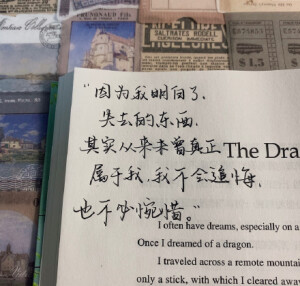 "因为我明白了、
失去的东西,
其实从来未曾真正
属于我,我不会追悔,
也不必惋惜。"
The Dra
I often have dreams, especially on a
Once I dreamed of a dragon.
I traveled across a remote mountai
only a stick, with which I cleared away
SALTRATES RODELL
$1.5